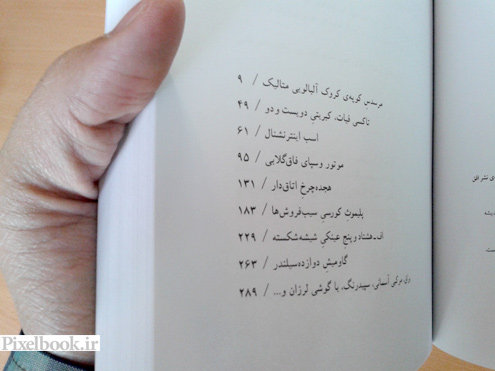 مرسدس کوپه‌ی کروک آلبالویی متالیک / ۹
تاکسی فیات، کبریتی دویست و دو / ۴۹
اسب اینترنشنال / ۶۱
موتور وسپای فاق‌گلابی / ۹۵
هجده‌چرخ اتاق‌دار / ۱۳۱
پلیموت کورسیِ سیب‌فروش‌ها / ۱۸۳
اف-هشتاد و پنج عینکیِ شیشه‌شکسته / ۲۲۹
گاومیشِ دوازده‌سیلندر / ۲۶۳
وانِ مرکبی آسمانی، سپیدرنگ، با گوشی لرزان و... / ۲۸۹
Pixelbook.ir